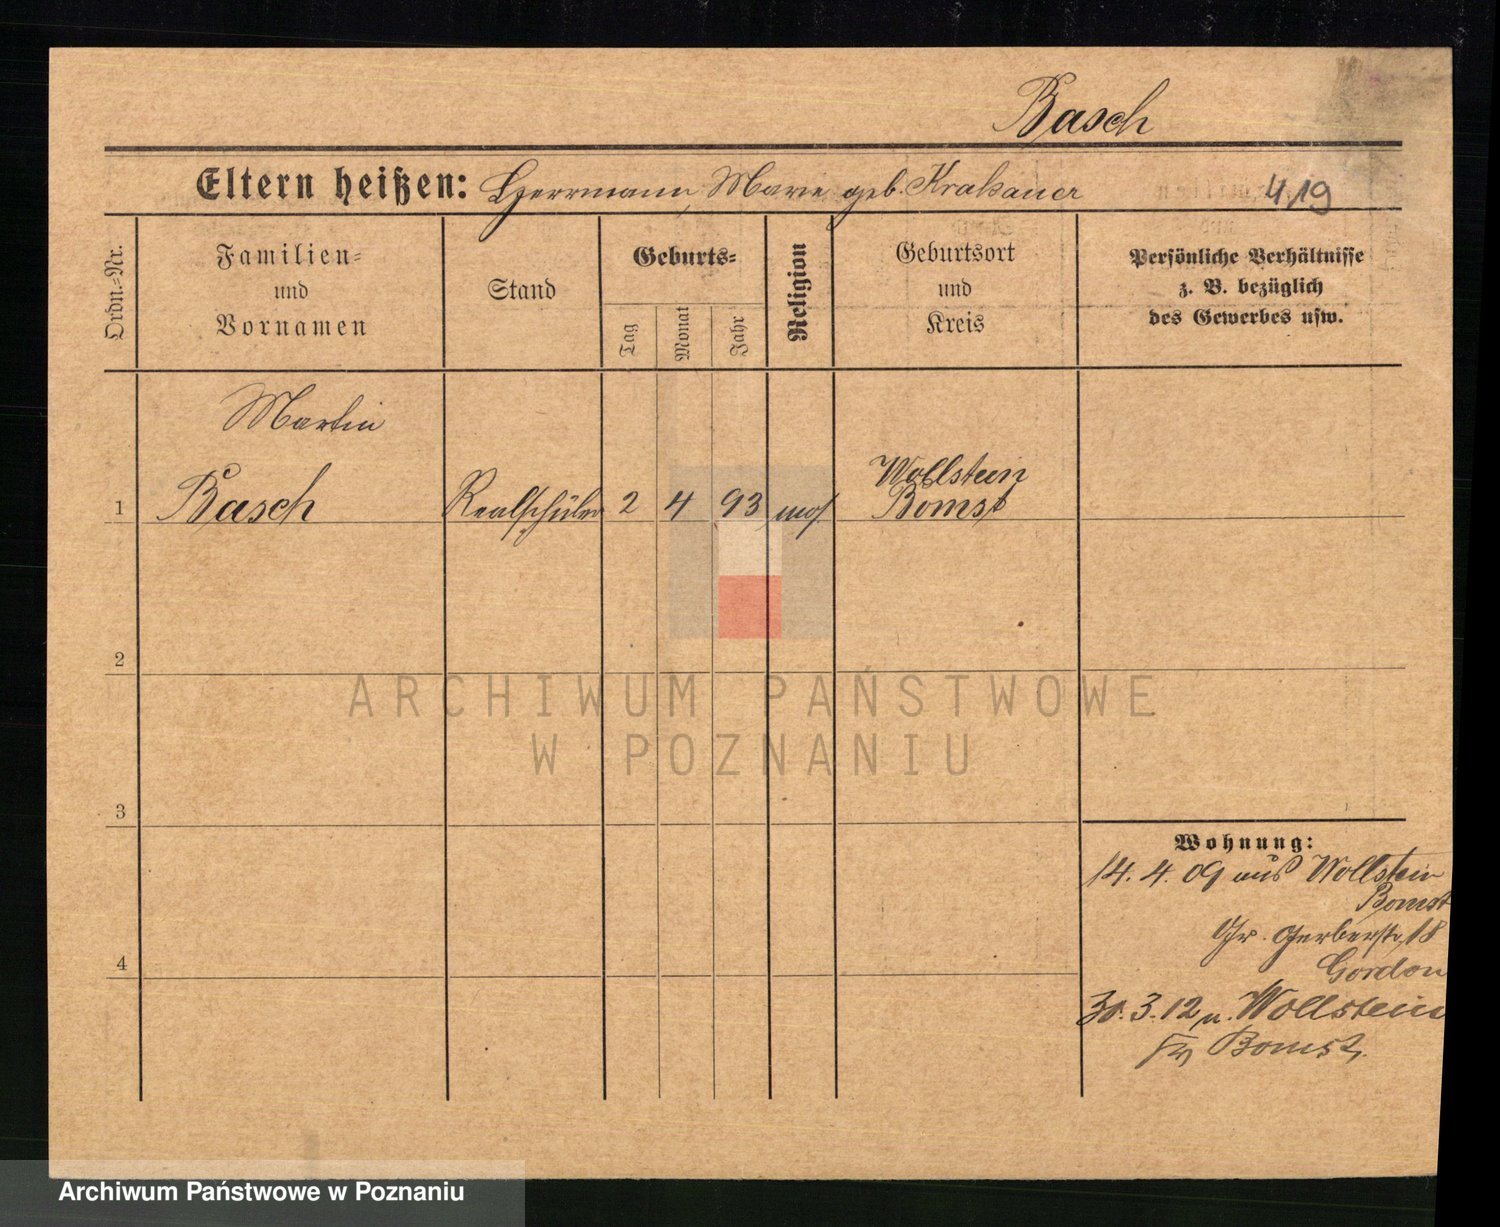 Basch
Eltern heißen: Herrmann, Marie geb. Krakauer
419
Ordn.-Nr.
Familien-
und
Vornamen
Stand
Geburts-
Tag
Monat
Jahr
Religion
Geburtsort
und
Kreis
Persönliche Verhältnisse
z. B. bezüglich
des Gewerbes usw.
Martin
1 Basch Realschüler 2 4 93 mos.
Wollstein
Bomst
2
3
4
Wohnung:
14. 4. 09 aus Wollstein
Bomst
Gr. Gerberstr. 18
Gordon
30. 3. 12 n. Wollstein
Bomst.
ARCHIWUM PAŃSTWOWE
W POZNANIU
Archiwum Państwowe w Poznaniu